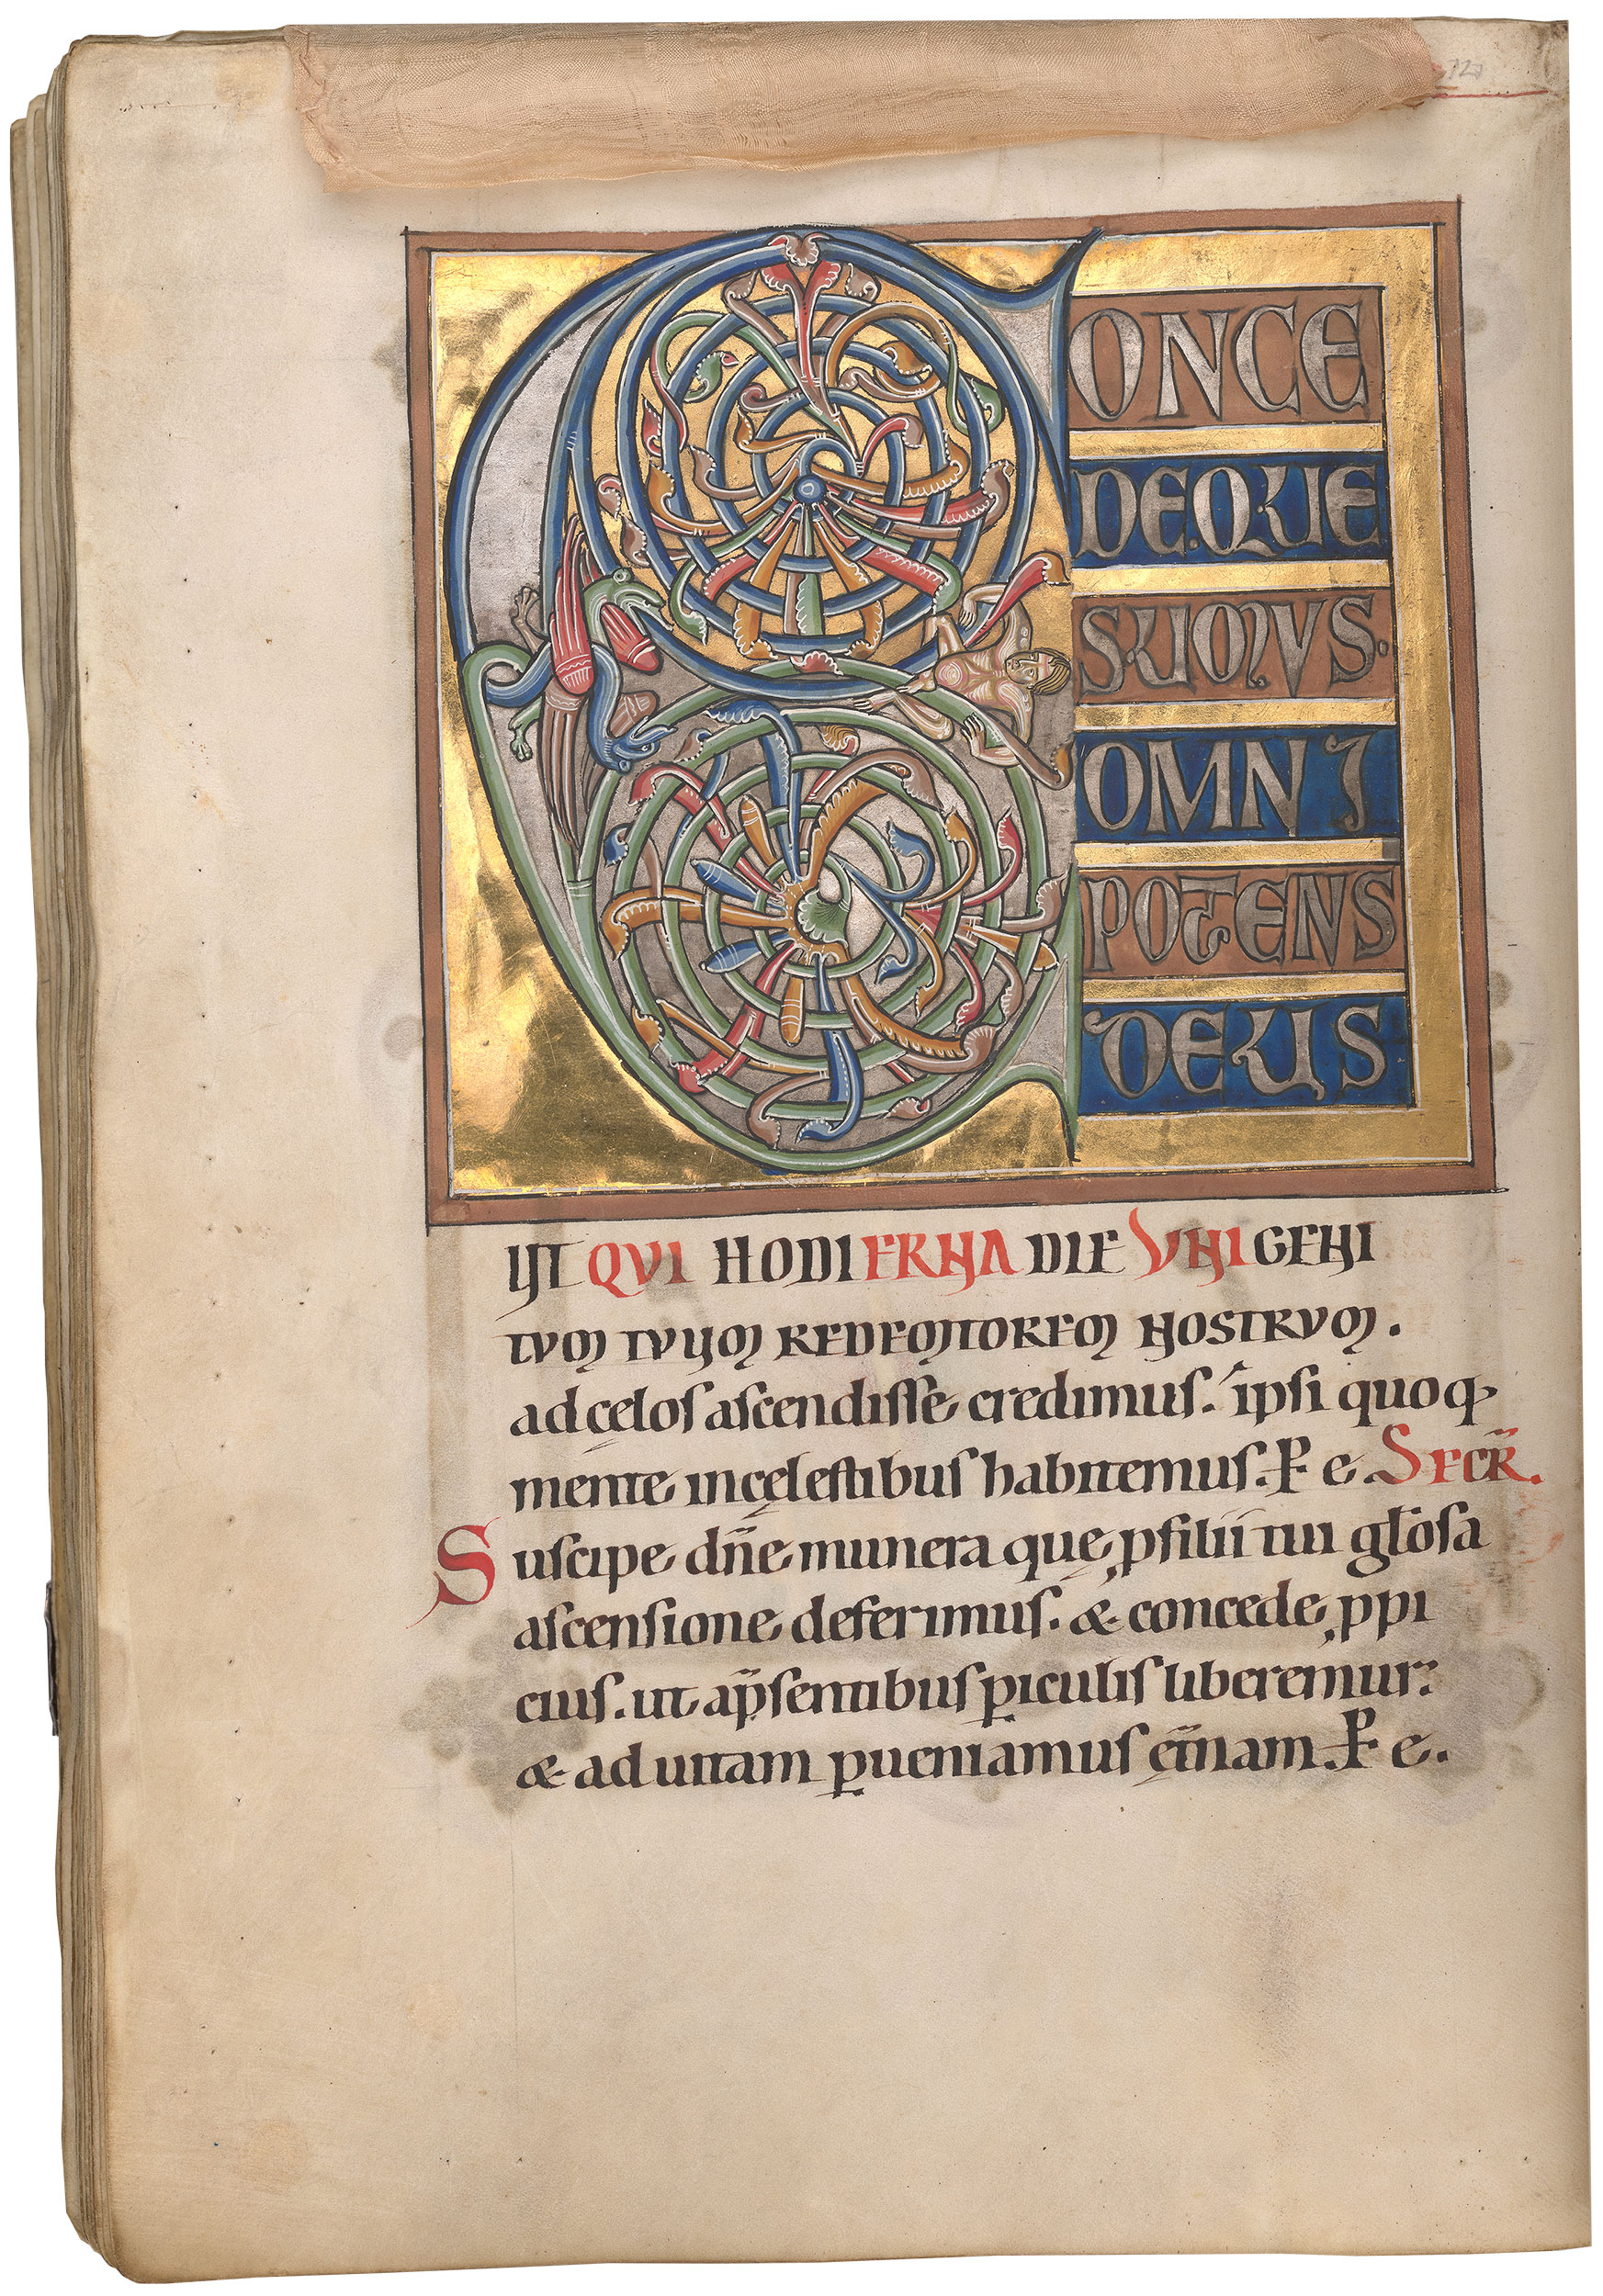 127
CONCE
DEQUE
SUMUS.
OMNI
POTENS
DEUS
UT QUI HODIERNA DIE UNIGENI
TUM TUUM REDEMPTOREM NOSTRUM.
ad cęlos ascendisse credimus. ipsi quoq;
mente in cęlestibus habitemus. P e. SECR̄.
Suscipe dn̄e munera quę p filii tui gl̄osa
ascensione deferimus. & concede ppi
cius. ut a p̄sentibus p̱iculis liberemur:
& ad uitam p̱ueniamus ęt̄nam. P e.